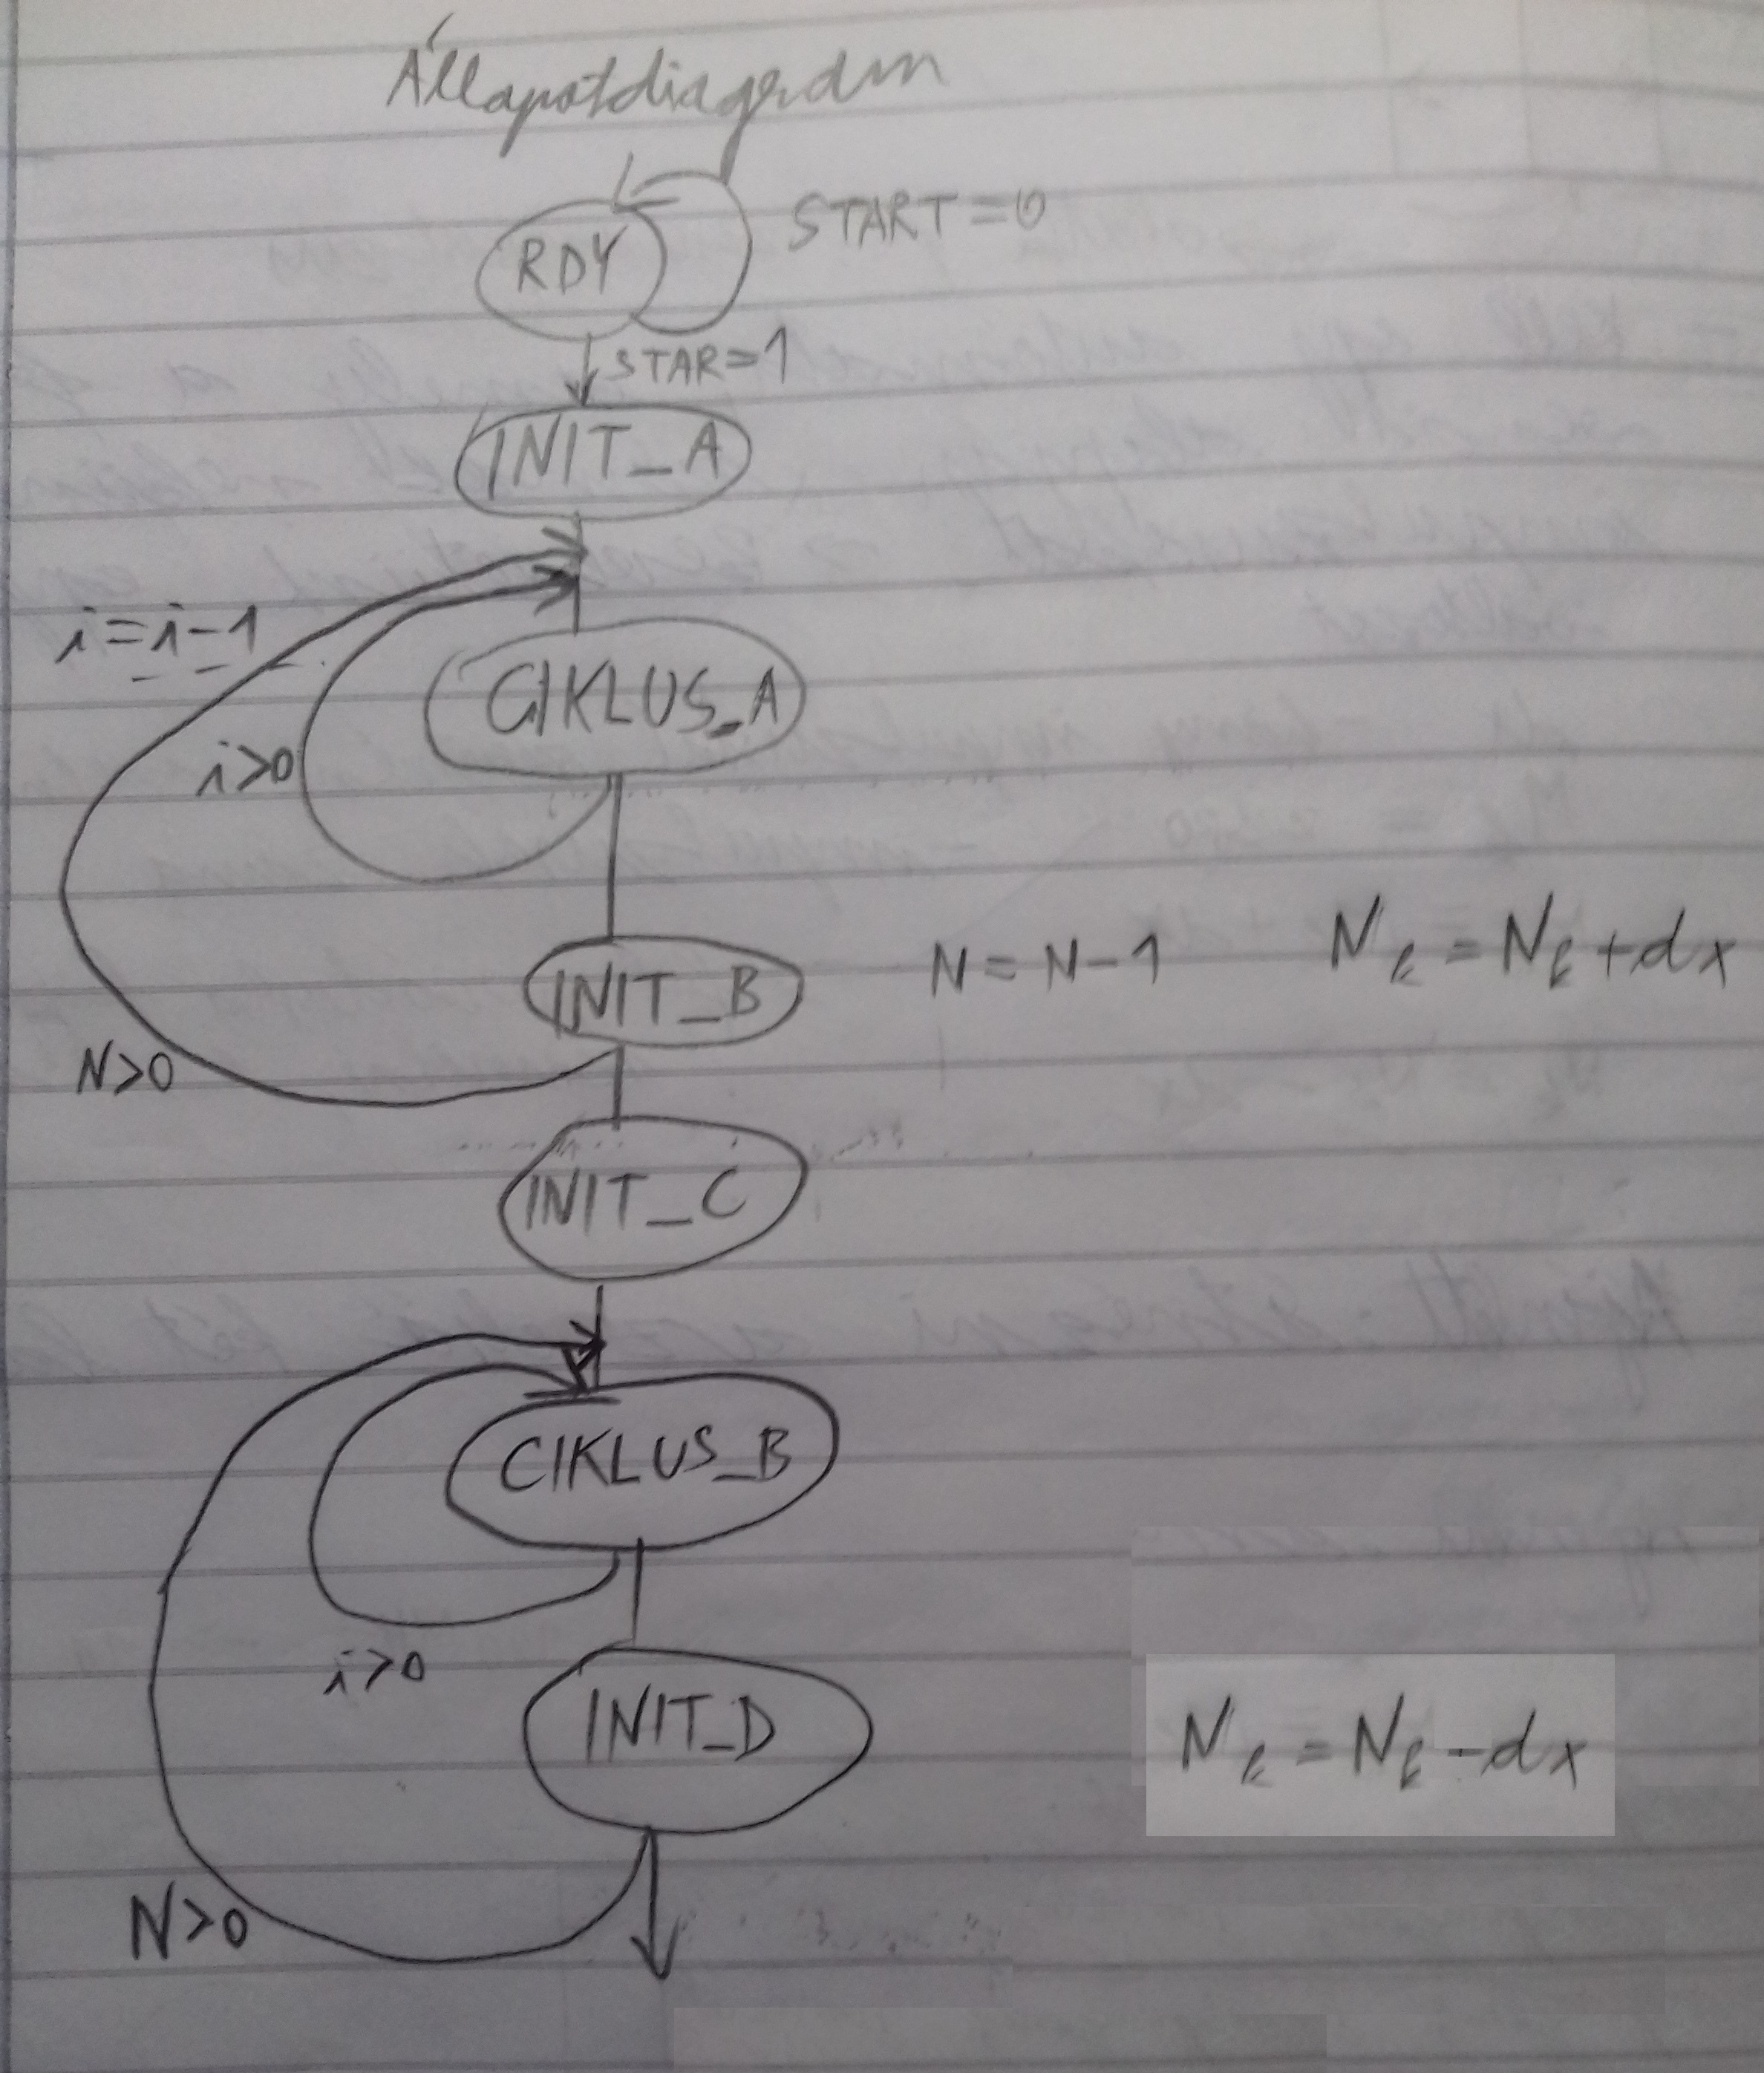 Állapotdiagram
START=0
RDY
STAR=1
INIT_A
i=i-1
CIKLUS_A
i>0
N=N-1 Nk=Nk+dx
INIT_B
N>0
INIT_C
CIKLUS_B
i>0
INIT_D
Nk=Nk-dx
N>0